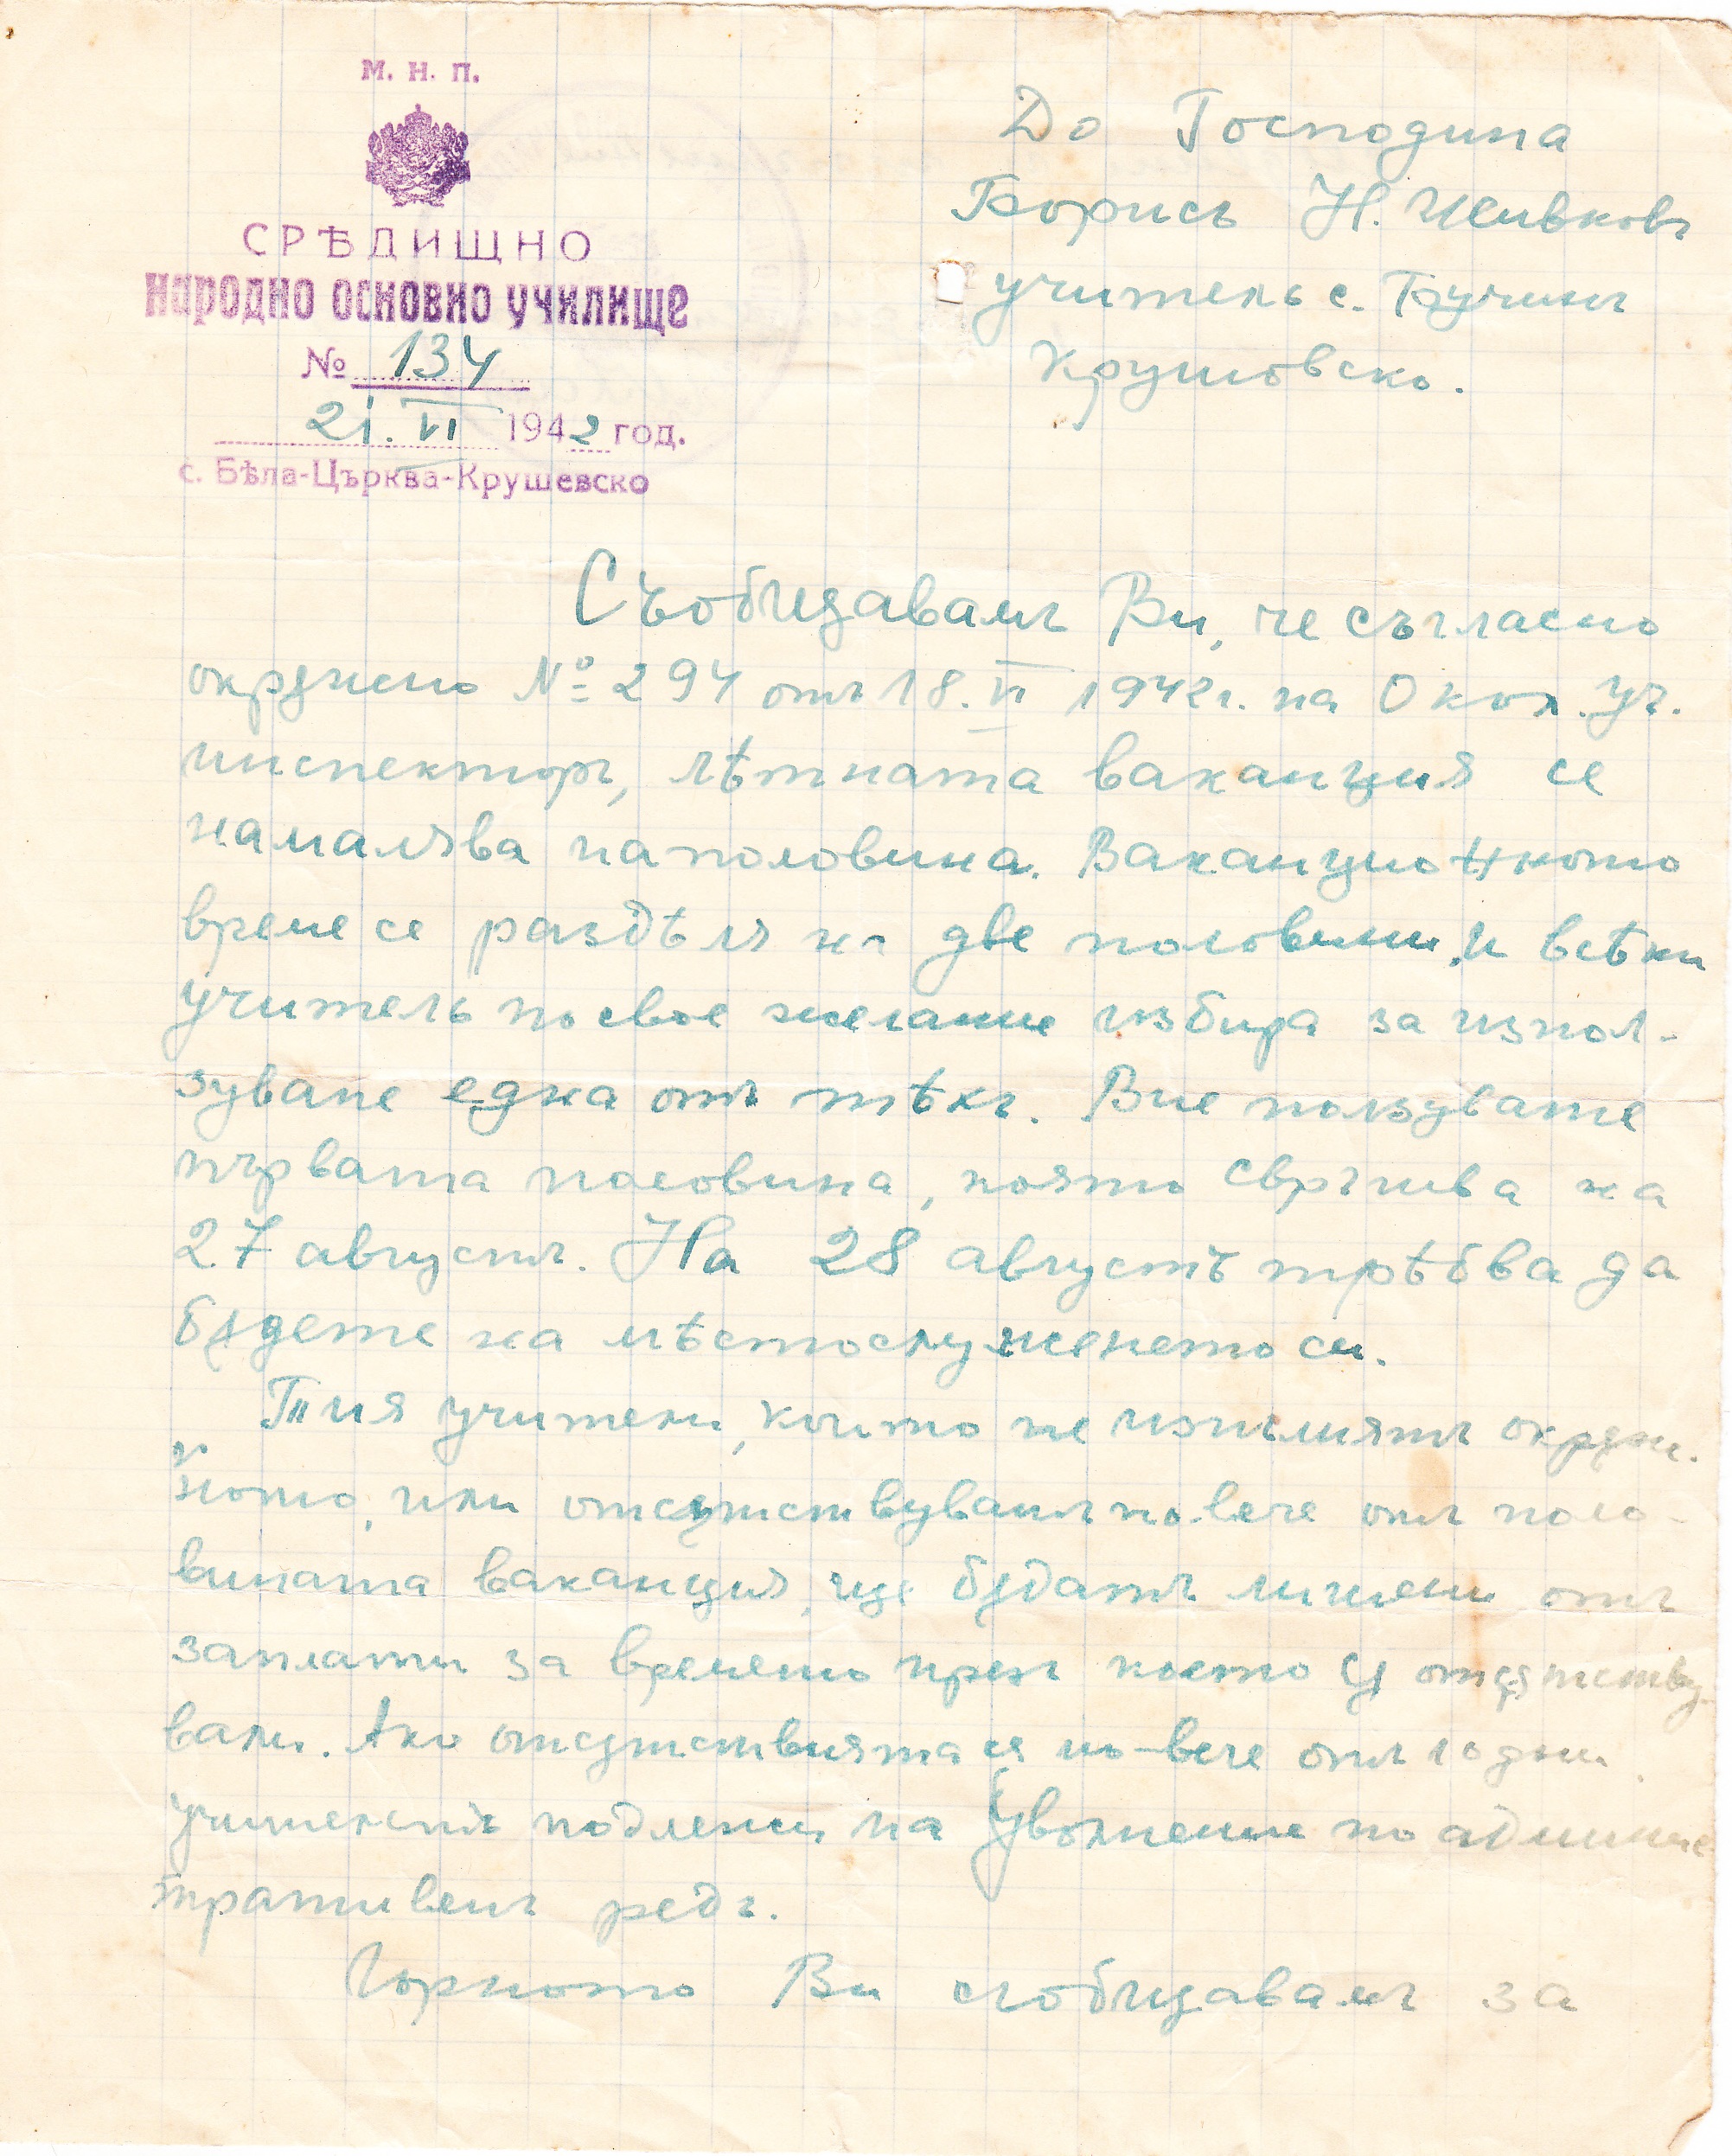 М. Н. П.
СРѢДИЩНО
народно основно училище
№ 134
21. VI 1942 год.
с. Бѣла-Църква-Крушевско
До Господина
Борисъ Н. Живковъ
учитель с. Бучинъ
Крушовско.
Съобщавамъ Ви, че съгласно
окрѫжно № 294 отъ 18. VI 1942 г. на Окол. Уч.
инспекторъ, лѣтната ваканция се
намалява наполовина. Ваканционното
време се раздѣля на две половини, и всѣки
учитель по свое желание избира за изпол-
зуване една отъ тѣхъ. Вие ползувате
първата половина, която свършва на
27 августъ. На 28 августъ трѣбва да
бѫдете на мѣстослужението си.
Тия учители, които не изпълнятъ окрѫж.
ното, или отсѫтствуватъ повече отъ поло-
вината ваканция, ще бѫдатъ лишени отъ
заплати за времето презъ което сѫ отсѫтству-
вали. Ако отсѫтствията сѫ по-вече отъ 10 дни
учительтъ подлежи на уволнение по админис
тративенъ редъ.
Горното Ви съобщавамъ за